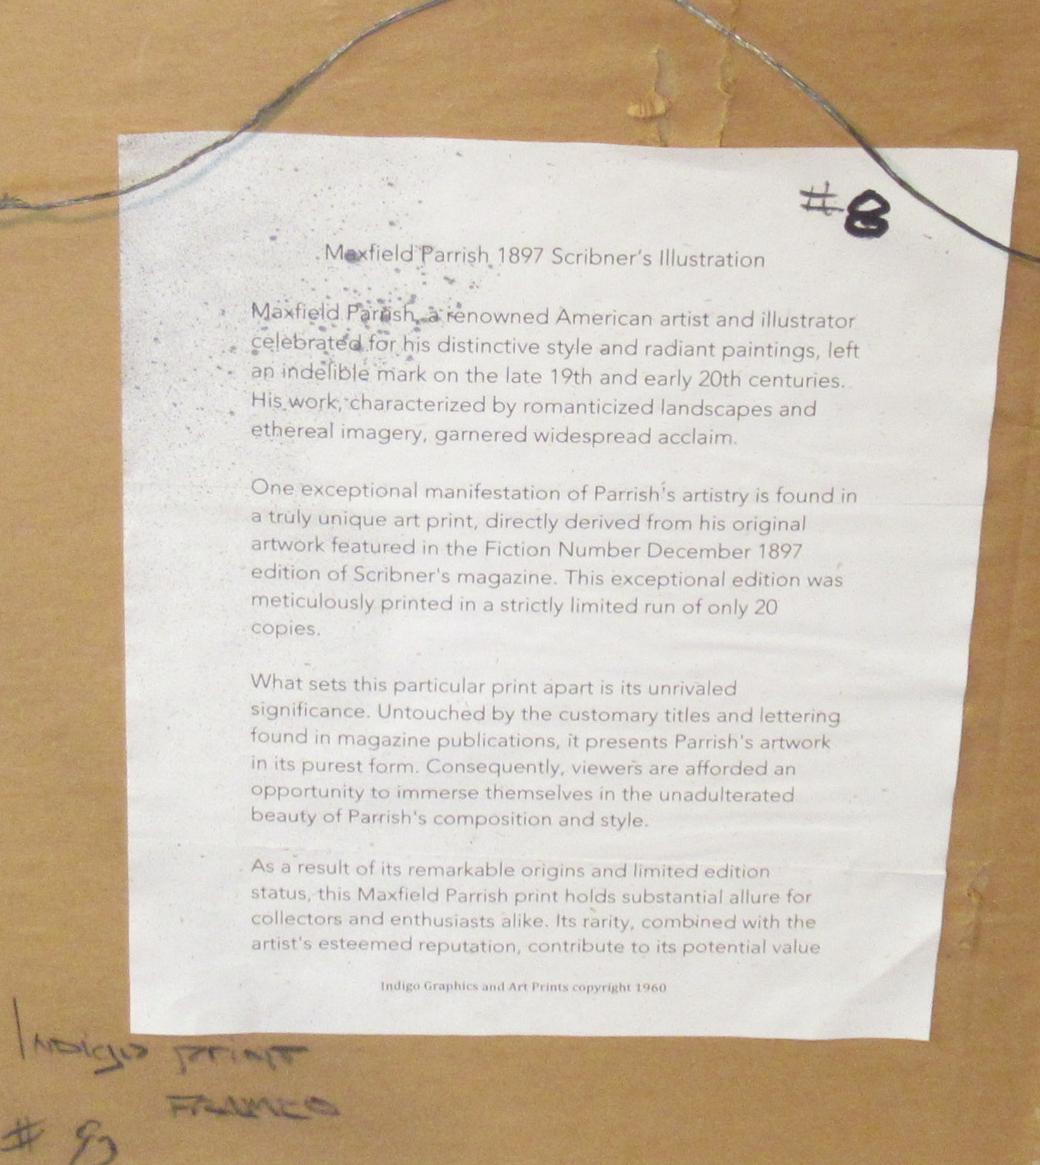 #8
Maxfield Parrish 1897 Scribner's Illustration
Maxfield Parrish, a renowned American artist and illustrator
celebrated for his distinctive style and radiant paintings, left
an indelible mark on the late 19th and early 20th centuries.
His work, characterized by romanticized landscapes and
ethereal imagery, garnered widespread acclaim.
One exceptional manifestation of Parrish's artistry is found in
a truly unique art print, directly derived from his original
artwork featured in the Fiction Number December 1897
edition of Scribner's magazine. This exceptional edition was
meticulously printed in a strictly limited run of only 20
copies.
What sets this particular print apart is its unrivaled
significance. Untouched by the customary titles and lettering
found in magazine publications, it presents Parrish's artwork
in its purest form. Consequently, viewers are afforded an
opportunity to immerse themselves in the unadulterated
beauty of Parrish's composition and style.
As a result of its remarkable origins and limited edition
status, this Maxfield Parrish print holds substantial allure for
collectors and enthusiasts alike. Its rarity, combined with the
artist's esteemed reputation, contribute to its potential value
Indigo Graphics and Art Prints copyright 1960
Indigo print
#